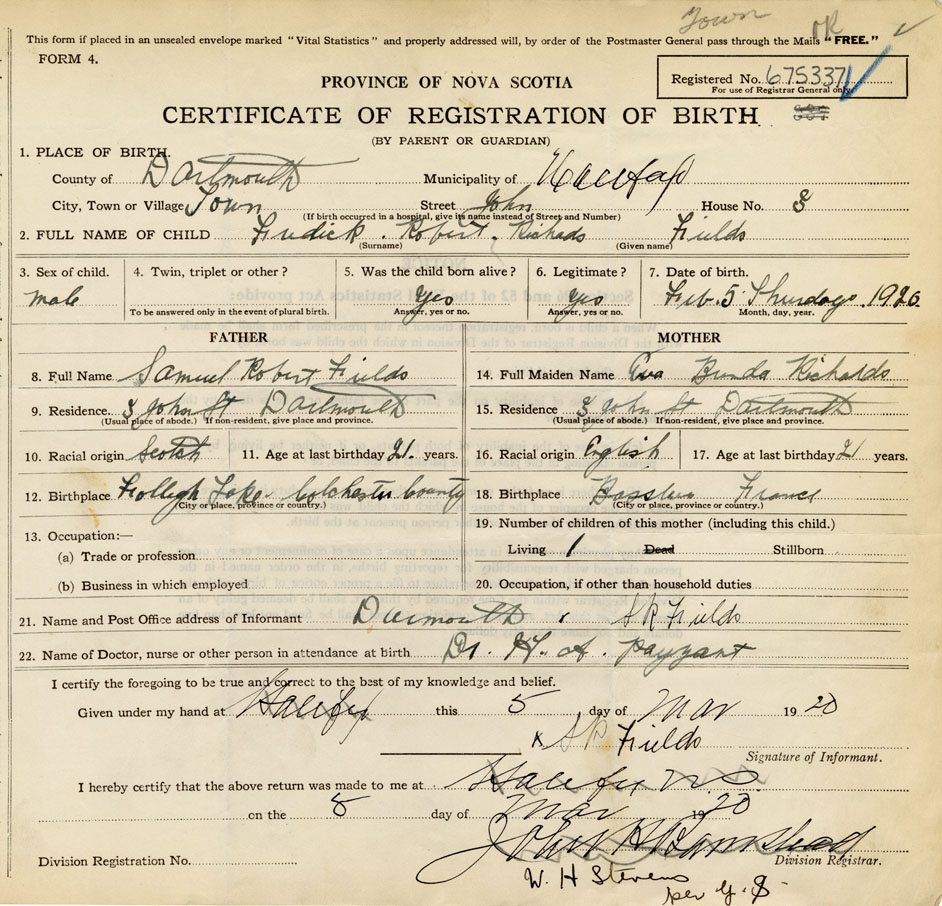 Town OK ✓
This form if placed in an unsealed envelope marked "Vital Statistics" and properly addressed will, by order of the Postmaster General pass through the Mails "FREE."
FORM 4.
PROVINCE OF NOVA SCOTIA
Registered No. 675337
For use of Registrar General only.
CERTIFICATE OF REGISTRATION OF BIRTH
(BY PARENT OR GUARDIAN)
1. PLACE OF BIRTH.
County of Dartmouth Municipality of Halifax
City, Town or Village Town Street John House No. 3
(If birth occurred in a hospital, give its name instead of Street and Number)
2. FULL NAME OF CHILD Fredick Robert Richads Fields
(Surname) (Given name)
3. Sex of child. 4. Twin, triplet or other? 5. Was the child born alive? 6. Legitimate? 7. Date of birth.
male Yes Yes Feb. 5 Thursday 1920
To be answered only in the event of plural birth. Answer, yes or no. Answer, yes or no. Month, day, year.
FATHER MOTHER
8. Full Name Samuel Robert Fields 14. Full Maiden Name Eva Richards
9. Residence. 3 John St Dartmouth 15. Residence 3 John St Dartmouth
(Usual place of abode.) If non-resident, give place and province. (Usual place of abode.) If non-resident, give place and province.
10. Racial origin Scotch 11. Age at last birthday 21. years. 16. Racial origin English 17. Age at last birthday 21 years.
12. Birthplace Folleigh Lake Colchester County 18. Birthplace France
(City or place, province or country.) (City or place, province or country.)
19. Number of children of this mother (including this child.)
13. Occupation:—
Living 1 Dead Stillborn
(a) Trade or profession.
(b) Business in which employed 20. Occupation, if other than household duties
21. Name and Post Office address of Informant Darmouth S R Fields
22. Name of Doctor, nurse or other person in attendance at birth Dr. H. A. Payzant
I certify the foregoing to be true and correct to the best of my knowledge and belief.
Given under my hand at Halifax this 5 day of Mar 1920
x S R Fields
Signature of Informant.
I hereby certify that the above return was made to me at Halifax N.S.
on the 8 day of Mar 1920
John
Division Registration No. Division Registrar.
W. H Stevens
per